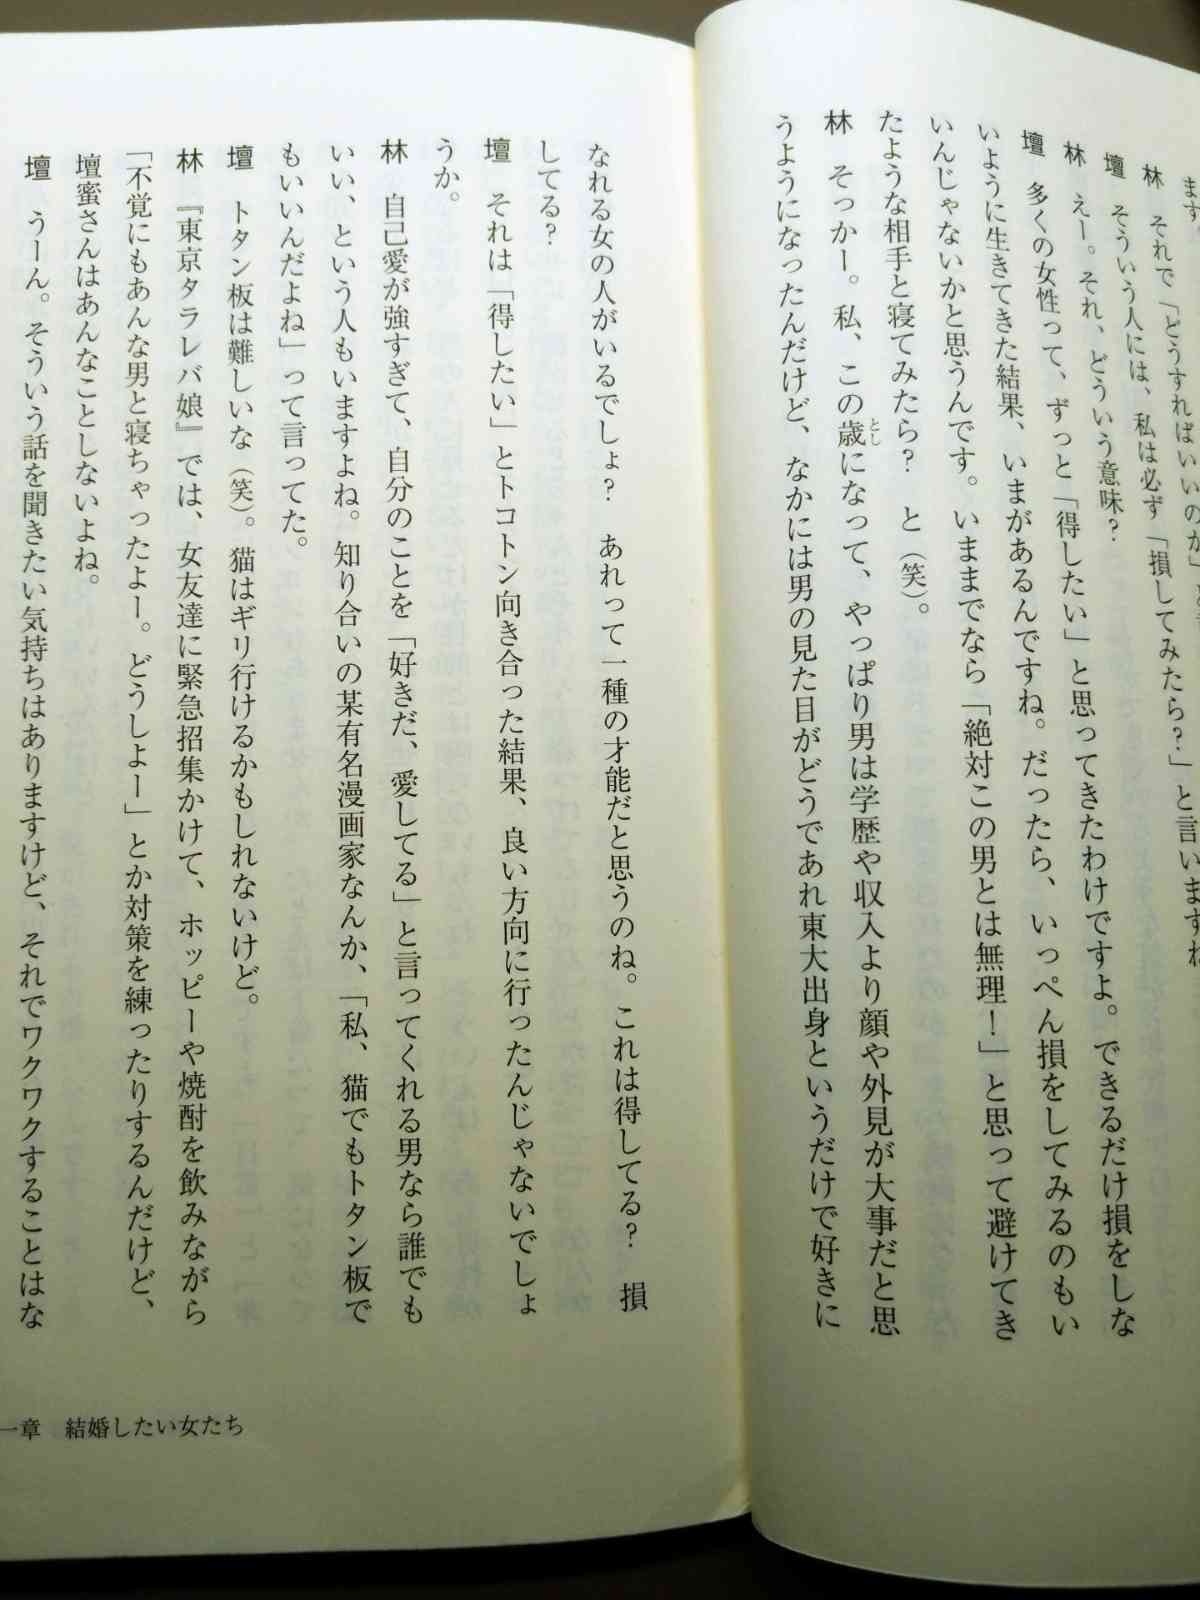 ます。
林　それで「どうすればいいのか」と
林　
壇　そういう人には、私は必ず「損してみたら？」と言いますね
林　えー。それ、どういう意味？
壇　多くの女性って、ずっと「得したい」と思ってきたわけですよ。できるだけ損をしな
いように生きてきた結果、いまがあるんですね。だったら、いっぺん損をしてみるのもい
いんじゃないかと思うんです。いままでなら「絶対この男とは無理！」と思って避けてき
たような相手と寝てみたら？　と（笑）。
林　そっかー。私、この歳になって、やっぱり男は学歴や収入より顔や外見が大事だと思
とし
うようになったんだけど、なかには男の見た目がどうであれ東大出身というだけで好きに
なれる女の人がいるでしょ？　あれって一種の才能だと思うのね。これは得してる？　損
してる？
壇　それは「得したい」とトコトン向き合った結果、良い方向に行ったんじゃないでしょ
うか。
林　自己愛が強すぎて、自分のことを「好きだ、愛してる」と言ってくれる男なら誰でも
いい、という人もいますよね。知り合いの某有名漫画家なんか、「私、猫でもトタン板で
もいいんだよね」って言ってた。
壇　トタン板は難しいな（笑）。猫はギリ行けるかもしれないけど。
林　『東京タラレバ娘』では、女友達に緊急招集かけて、ホッピーや焼酎を飲みながら
「不覚にもあんな男と寝ちゃったよー。どうしよー」とか対策を練ったりするんだけど、
壇蜜さんはあんなことしないよね。
壇　うーん。そういう話を聞きたい気持ちはありますけど、それでワクワクすることはな
一章　結婚したい女たち